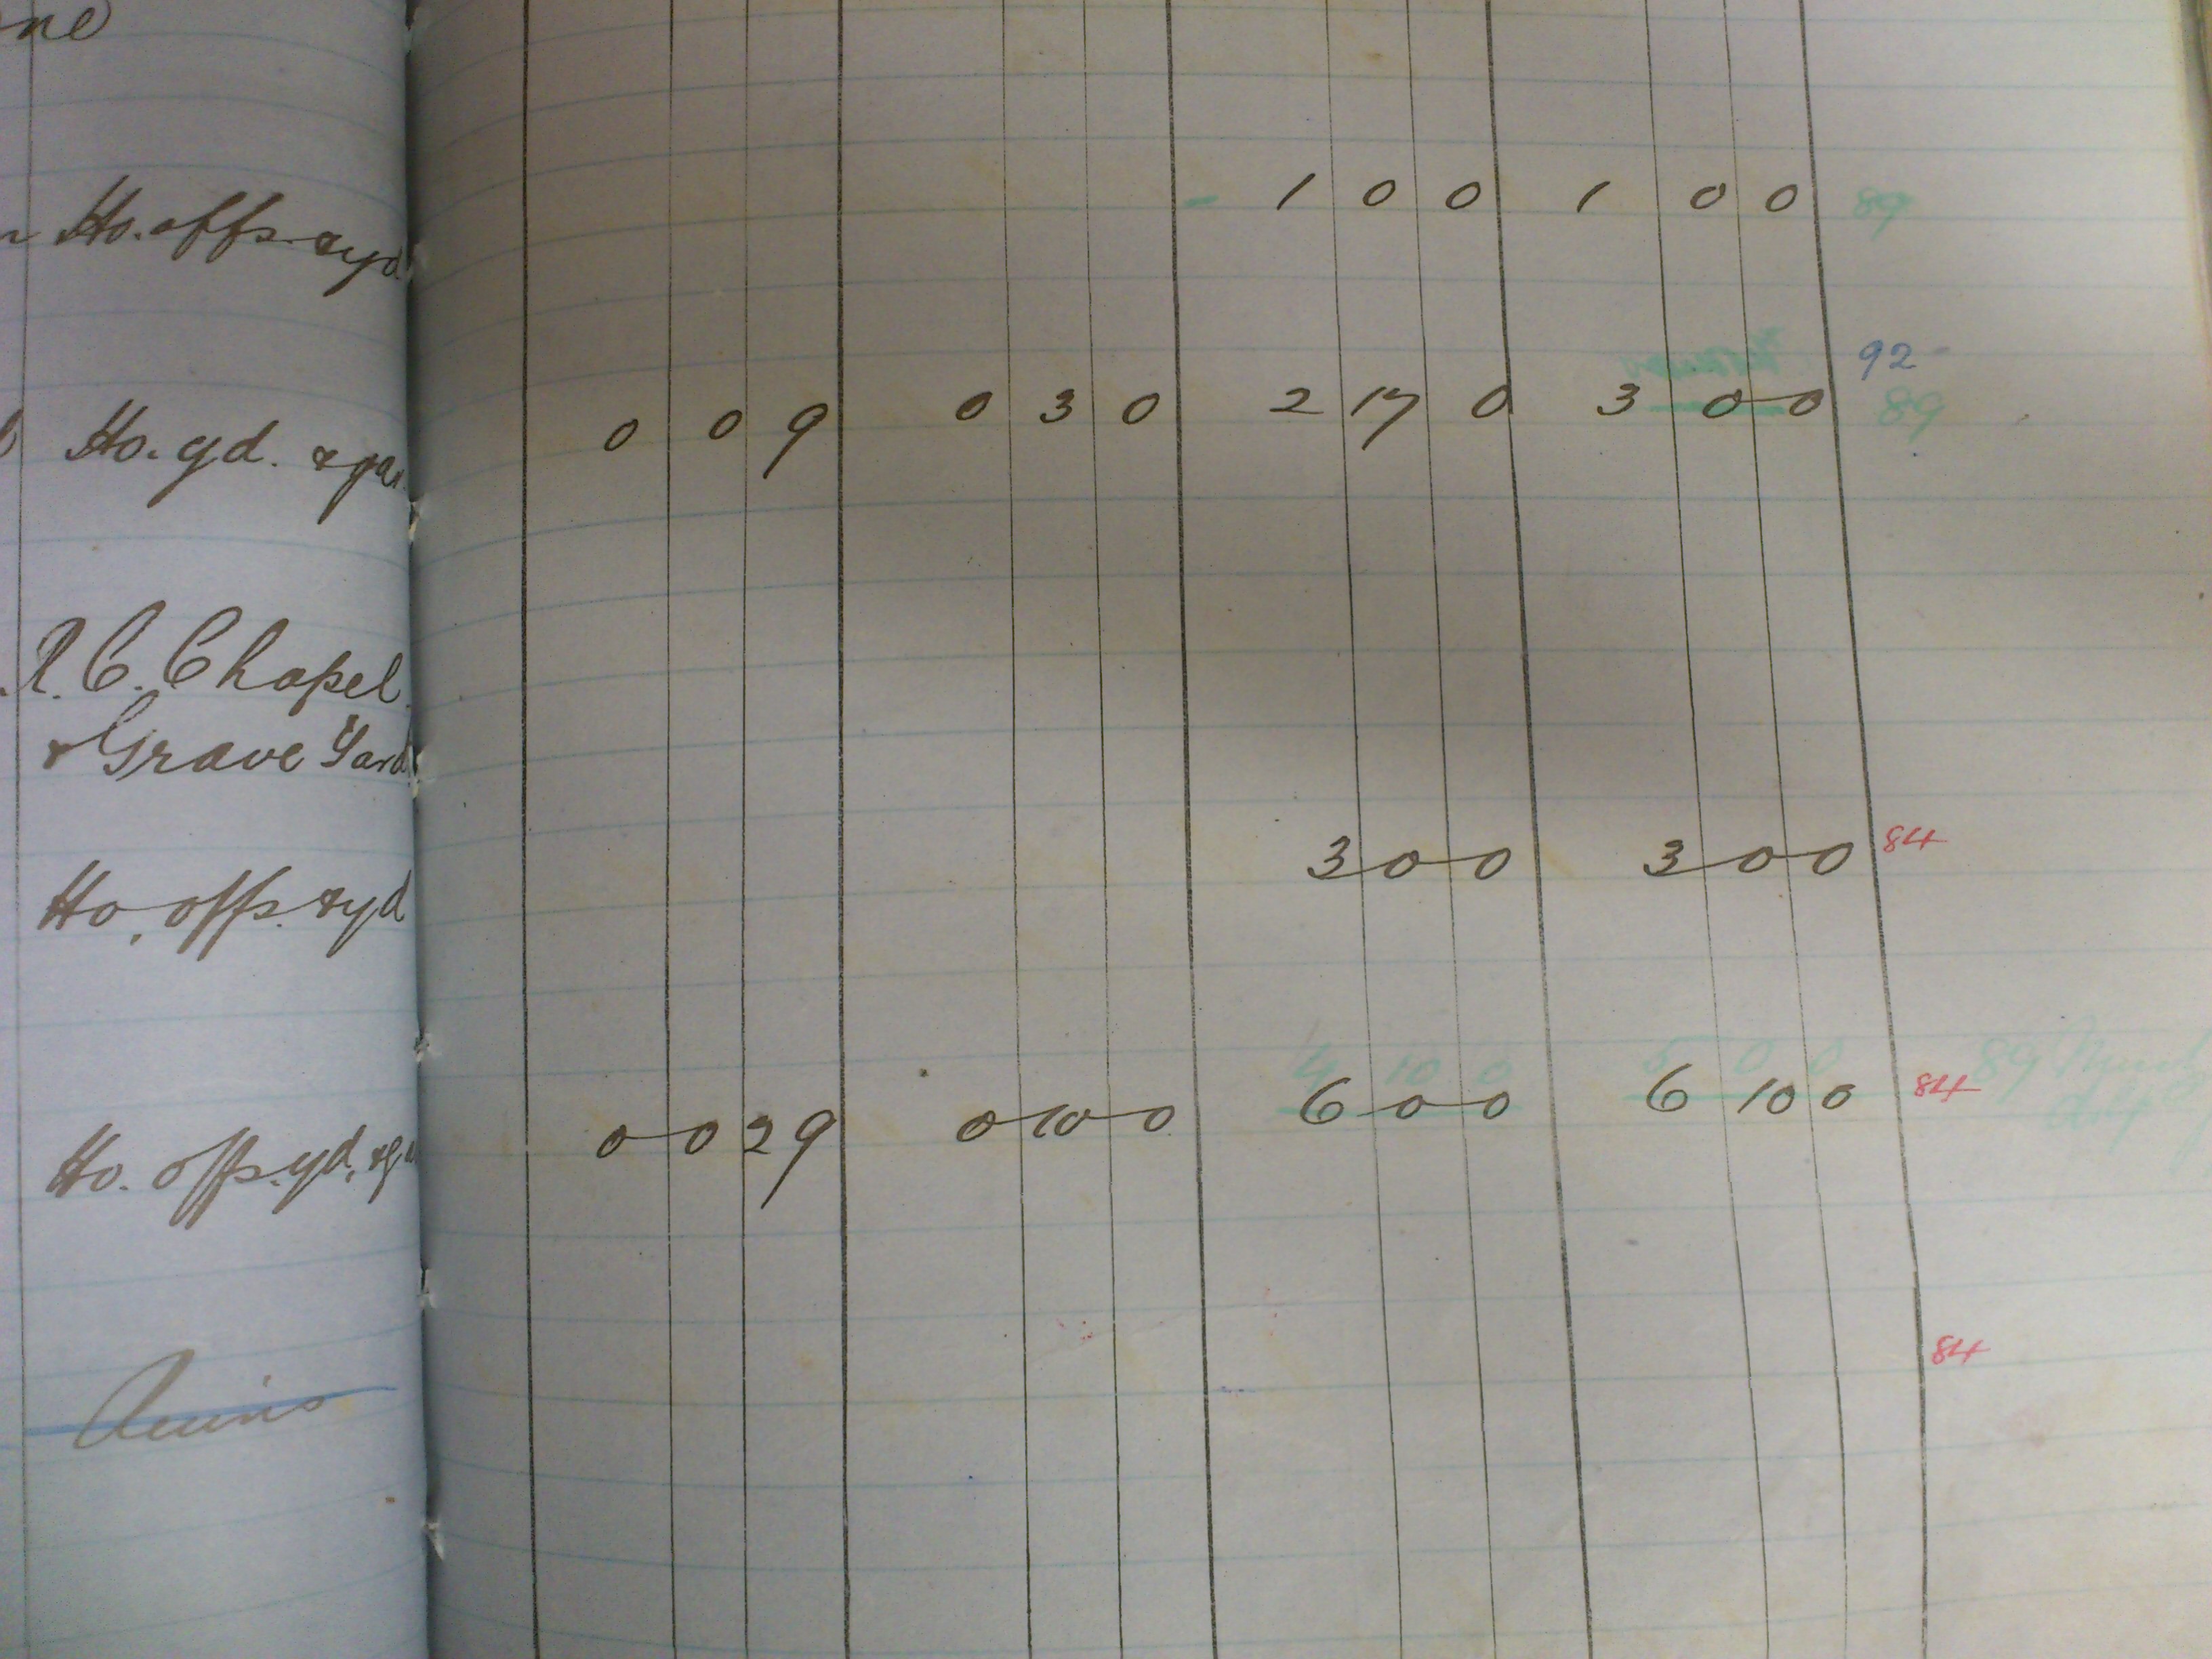 Ho. offs. & yd
- 1 0 0 1 0 0 89
92
Ho. yd. & gar. 0 0 9 0 3 0 2 17 0 3 0 0 89
R. C. Chapel
& Grave Yard
Ho. offs. & yd 3 0 0 3 0 0 84
4 10 0 5 0 0 89
Ho. offs. yd, & g 0 0 29 0 10 0 6 0 0 6 10 0 84
Ruins 84